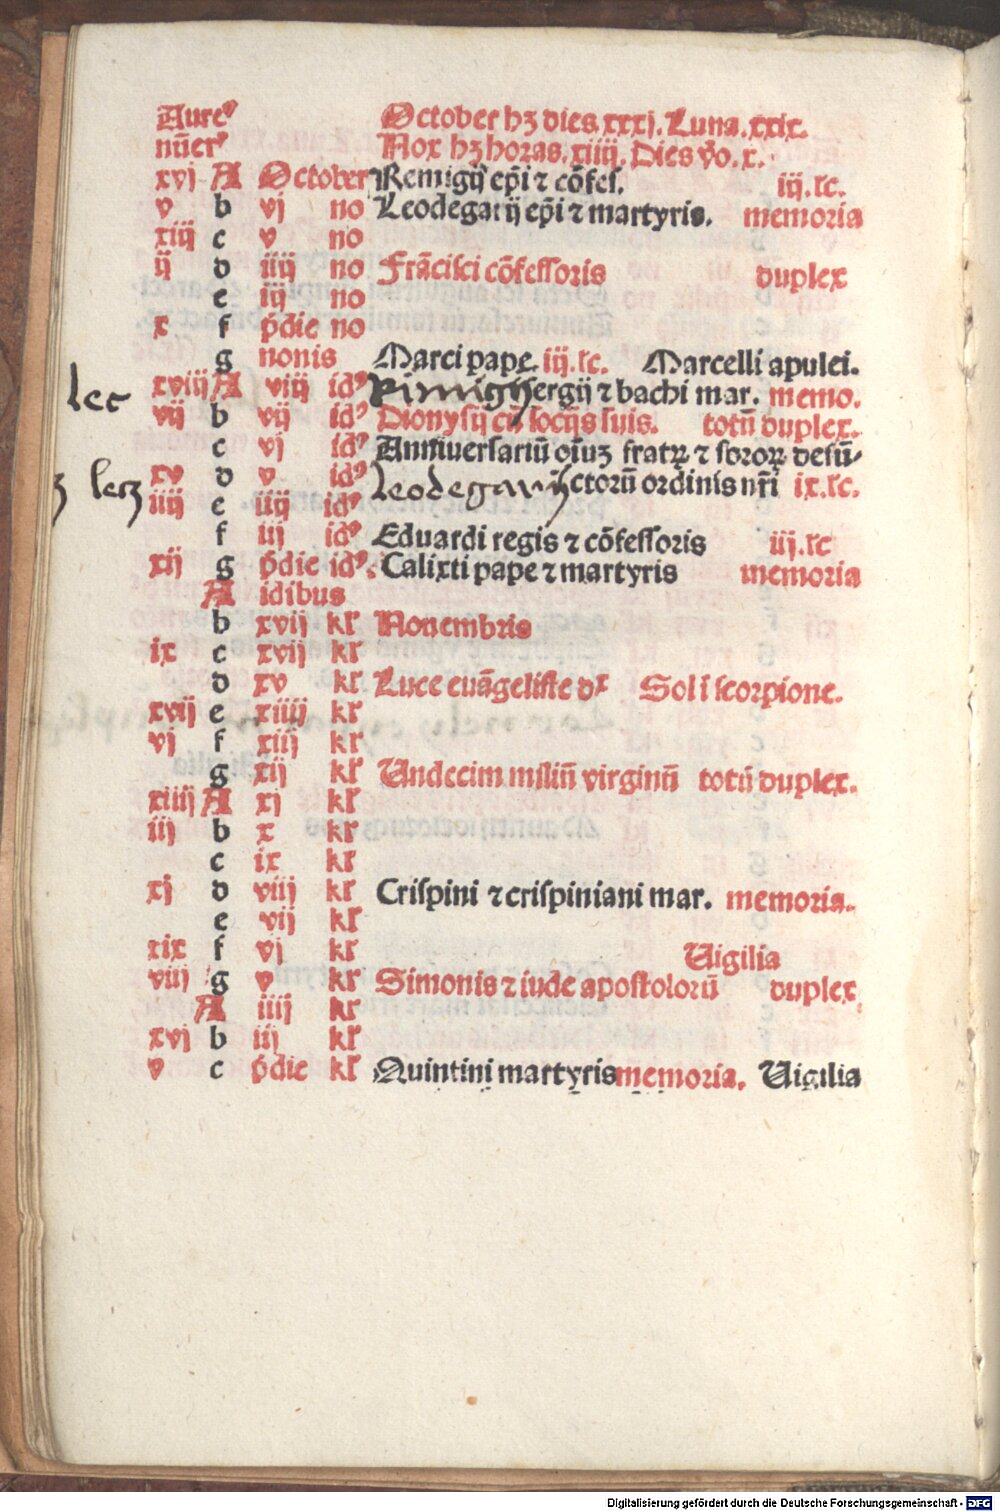 Aureꝰ October hꝫ dies. xxxj. Luna. xxix.
nũerꝰ Nox hꝫ horas. xiiij. Dies v̓o. x.
xvj A October Remigij ep̃i ⁊ cõfes. iij. lc.
v b vj no Leodegarij ep̃i ⁊ martyris. memoria
xiij c v no
ij d iiij no Frãcisci cõfessoris duplex
e iij no
x f p̓die no
g nonis Marci pape. iij. lc. Marcelli apulei.
lec xviij A viij idꝰ Rimigij ergij ⁊ bachi mar. memo.
vij b vij idꝰ Dionysij cũ socijs suis. totũ duplex.
c vj idꝰ Anniuersariũ oĩuꝫ fratrꝝ ⁊ sororꝝ defũ-
ꝫ lecꝫ xv d v idꝰ leodegarij ctorũ ordinis nr̃i ix. lc.
iiij e iiij idꝰ
f iij idꝰ Eduardi regis ⁊ cõfessoris iij. lc
xij g p̓die idꝰ. Calixti pape ⁊ martyris memoria
A idibus
b xvij kl̓ Nouembris
ix c xvij kl̓
d xv kl̓ Luce euãgeliste dx Sol ĩ scorpione.
xvij e xiiij kl̓
vj f xiij kl̓
g xij kl̓ Undecim miliũ virginũ totũ duplex.
xiiij A xj kl̓
iij b x kl̓
c ix kl̓
xj d viij kl̓ Crispini ⁊ crispiniani mar. memoria.
e vij kl̓
xix f vj kl̓ Uigilia
viij g v kl̓ Simonis ⁊ iude apostolorũ duplex
A iiij kl̓
xvj b iij kl̓
v c p̓die kl̓ Quintini martyris memoria. Uigilia
Digitalisierung gefördert durch die Deutsche Forschungsgemeinschaft - DFG